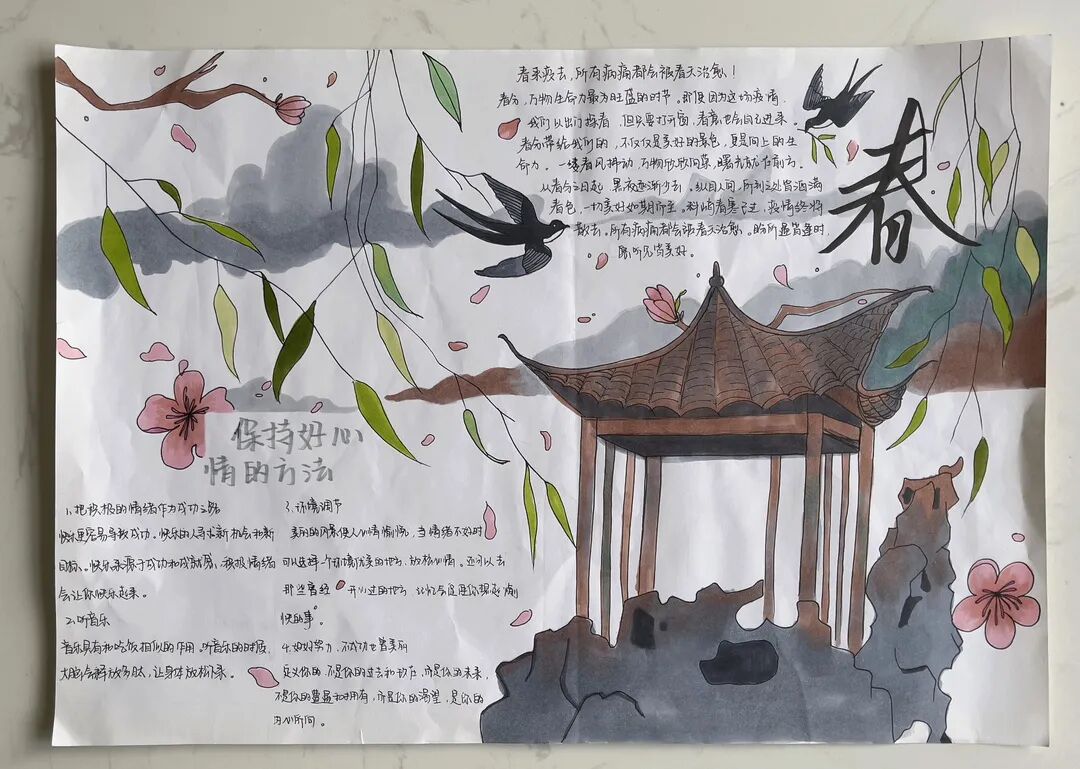 春来疫去，所有病痛都会被春天治愈！
春分，万物生命力最为旺盛的时节。即便因为这场疫情，
我们难以出门探春，但只要打开窗，春意也会闯进来。
春分带给我们的，不仅仅是美好的景色，更是向上的生
命力。一缕春风拂动，万物欣欣向荣，曙光就在前方。
从春分之日起，黑夜逐渐少去。纵目人间，所到之处皆洒满
春色，一切美好如期而至。料峭春寒已过，疫情终将
散去。所有病痛都会被春天治愈。盼所愿皆逢时，
愿所见皆美好。
春
保持好心
情的方法
1、把积极的情绪作为成功之路
快乐更容易导致成功。快乐的人寻求新机会和新
目标。快乐来源于成功和成就感，积极情绪
会让你快乐起来。
2、听音乐
音乐具有和吃饭相似的作用。听音乐的时候，
大脑会释放多肽，让身体放松下来。
3、环境调节
美丽的风景使人心情愉悦，当情绪不好时
可以选择一个环境优美的地方，放松心情。还可以去
那些曾经开心过的地方，记忆会促使你想起愉
快的事。
4、好好努力，不成功也是美丽
定义你的，不是你的过去和现在，而是你的未来，
不是你的 和拥有，而是你的渴望，是你的
内心所向。